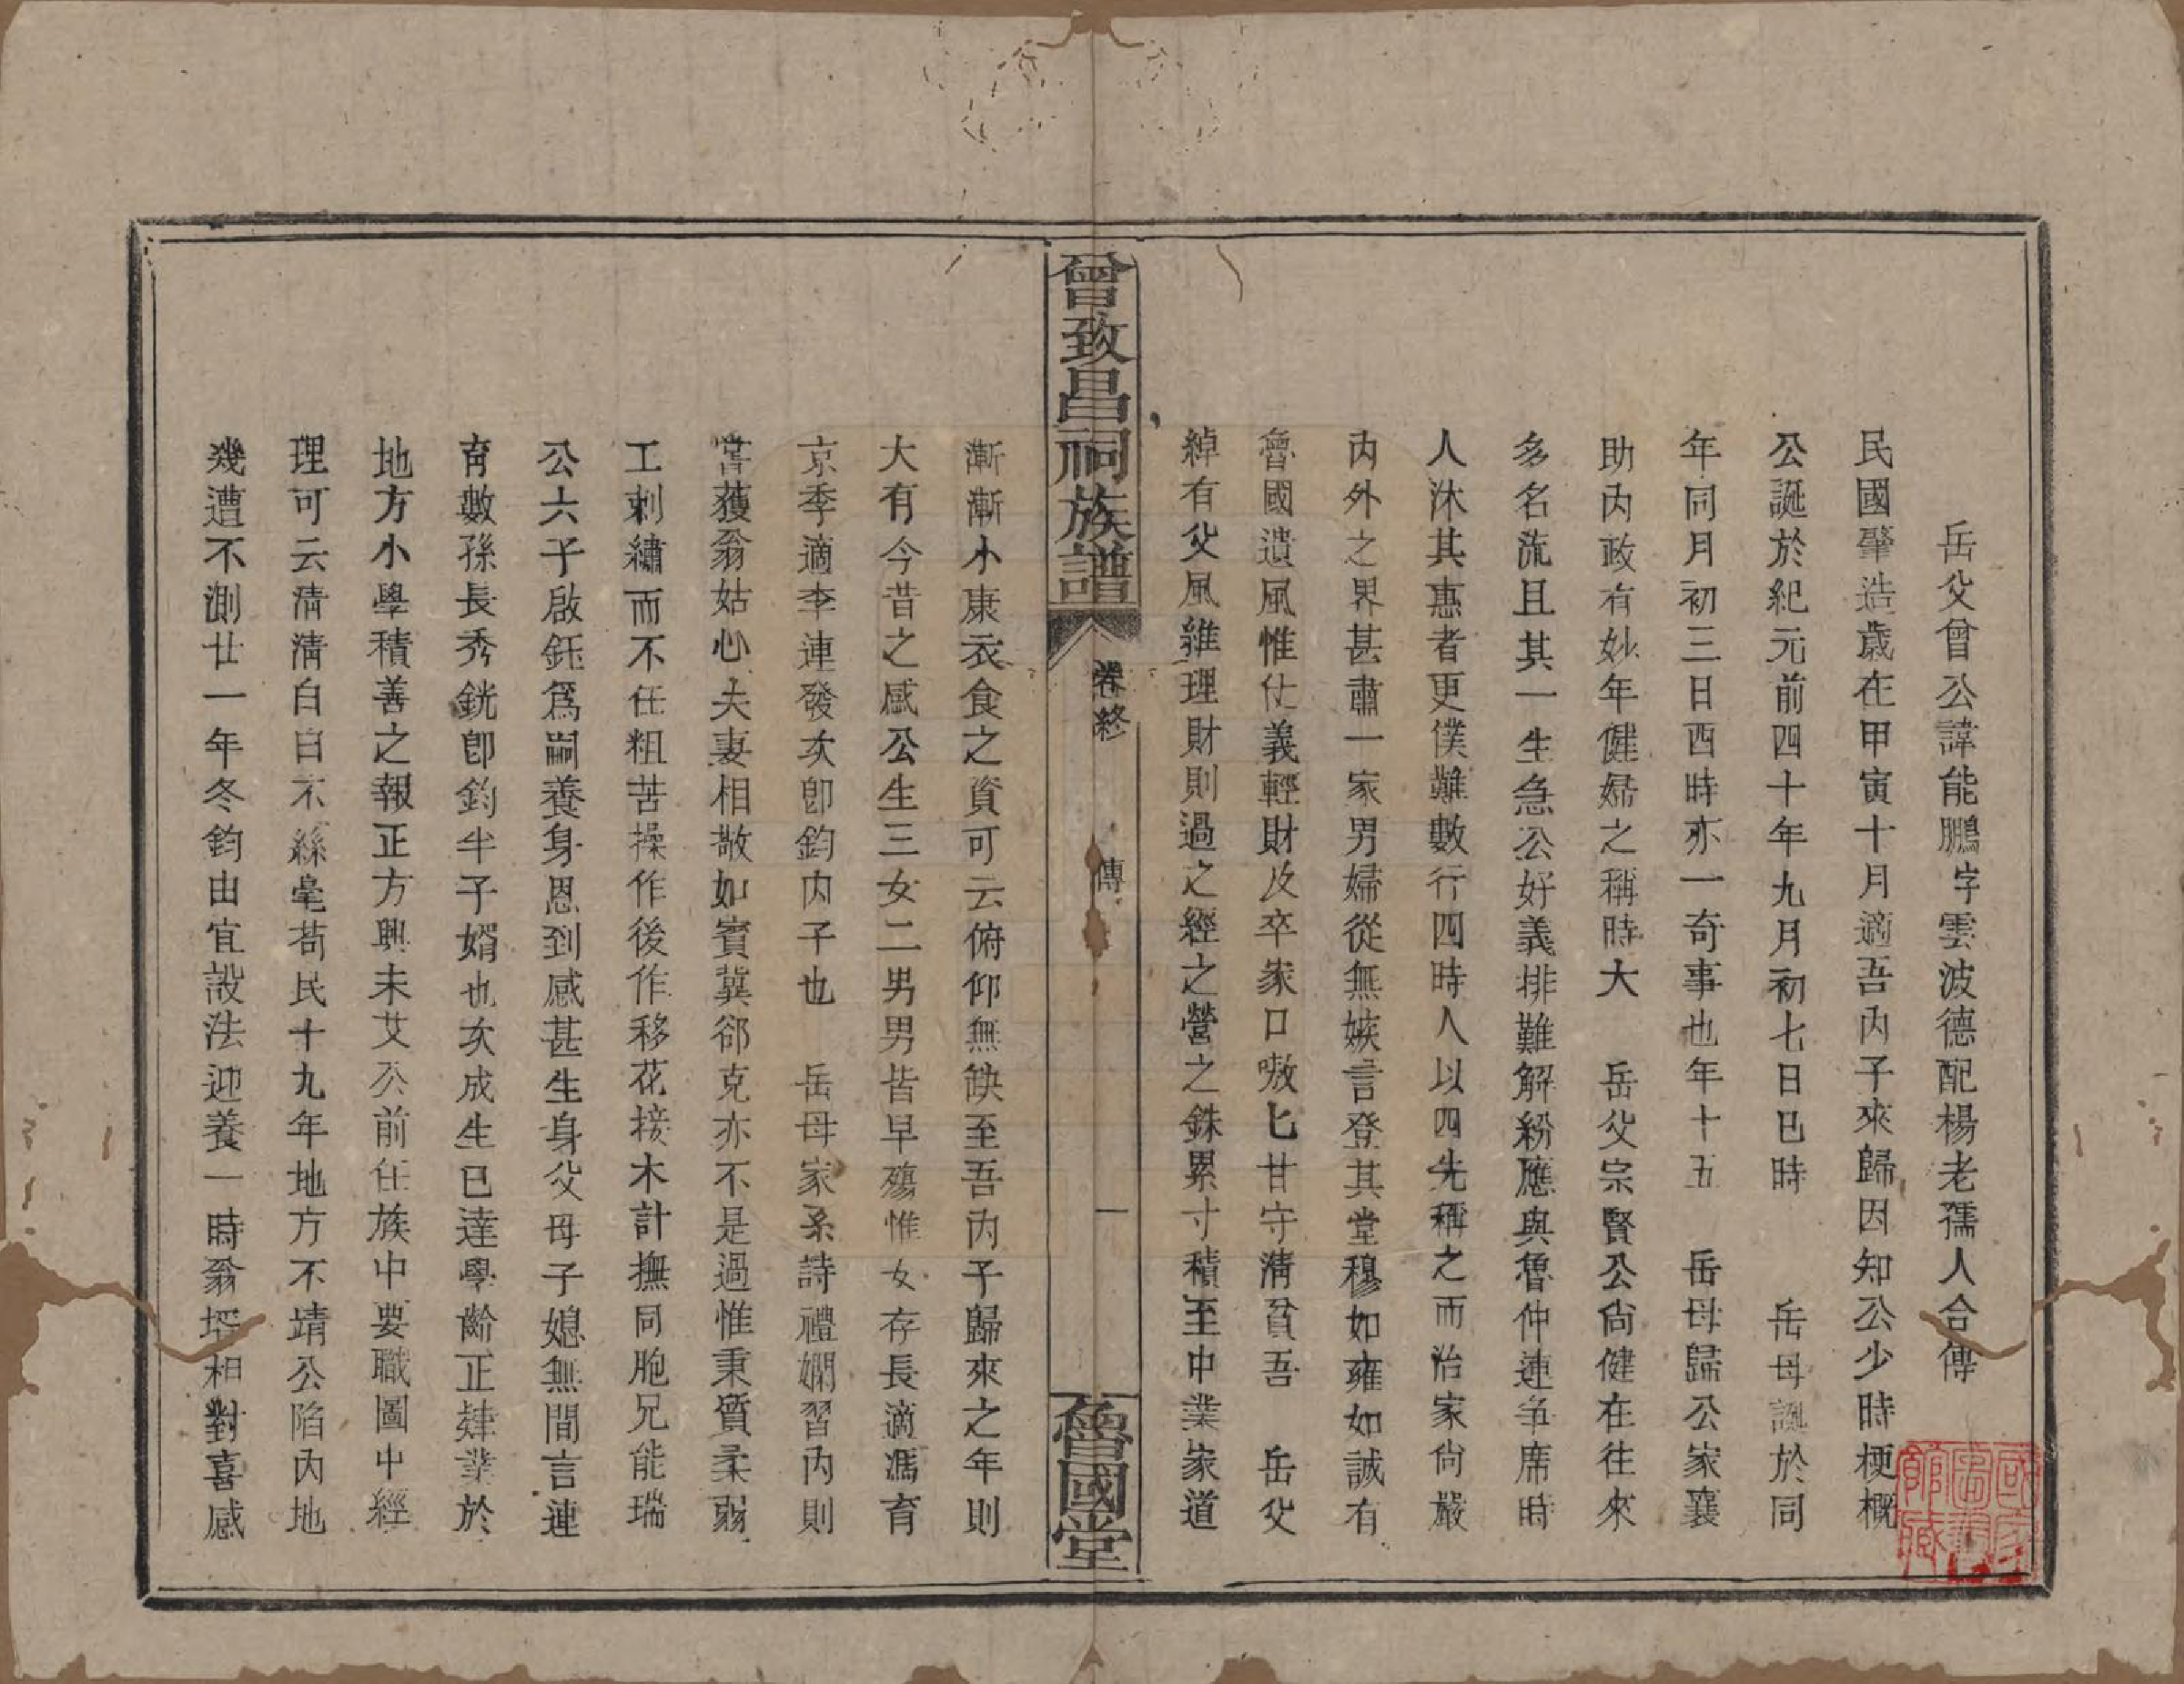 岳父曾公諱能鵬字雲波德配楊老孺人合傳
民國肇造歲在甲寅十月適吾內子來歸因知公少時梗概
公誕於紀元前四十年九月初七日巳時　岳母誕於同
年同月初三日酉時亦一奇事也年十五　岳母歸公家襄
助內政有妙年健婦之稱時大　岳父宗賢公尙健在往來
多名流且其一生急公好義排難解紛應與魯仲連爭席時
人沐其惠者更僕難數行四時人以四先稱之而治家尙嚴
內外之界甚肅一家男婦從無嫉言登其堂穆如雍如誠有
魯國遺風惟仕義輕財及卒家口嗷匕甘守淸貧吾　岳父
綽有父風維理財則過之經之營之銖累寸積至中業家道
曾致昌祠族譜
卷終
傳
一
魯國堂
漸漸小康衣食之資可云俯仰無缺至吾內子歸來之年則
大有今昔之感公生三女二男男皆早殤惟女存長適馮育
京季適李連發次卽鈞內子也　岳母家系詩禮嫻習內則
嘗獲翁姑心夫妻相敬如賓冀郤克亦不是過惟秉質柔弱
工刺繡而不任粗苦操作後作移花接木計撫同胞兄能瑞
公六子啟鈺爲嗣養身恩到感甚生身父母子媳無間言連
育數孫長秀銚卽鈞半子婿也次成生已達學齡正肄業於
地方小學積善之報正方興未艾公前任族中要職圖中經
理可云淸淸白白不絲毫苟民十九年地方不靖公陷內地
幾遭不測廿一年冬鈞由宜設法迎養一時翁壻相對喜感
國家圖書館藏